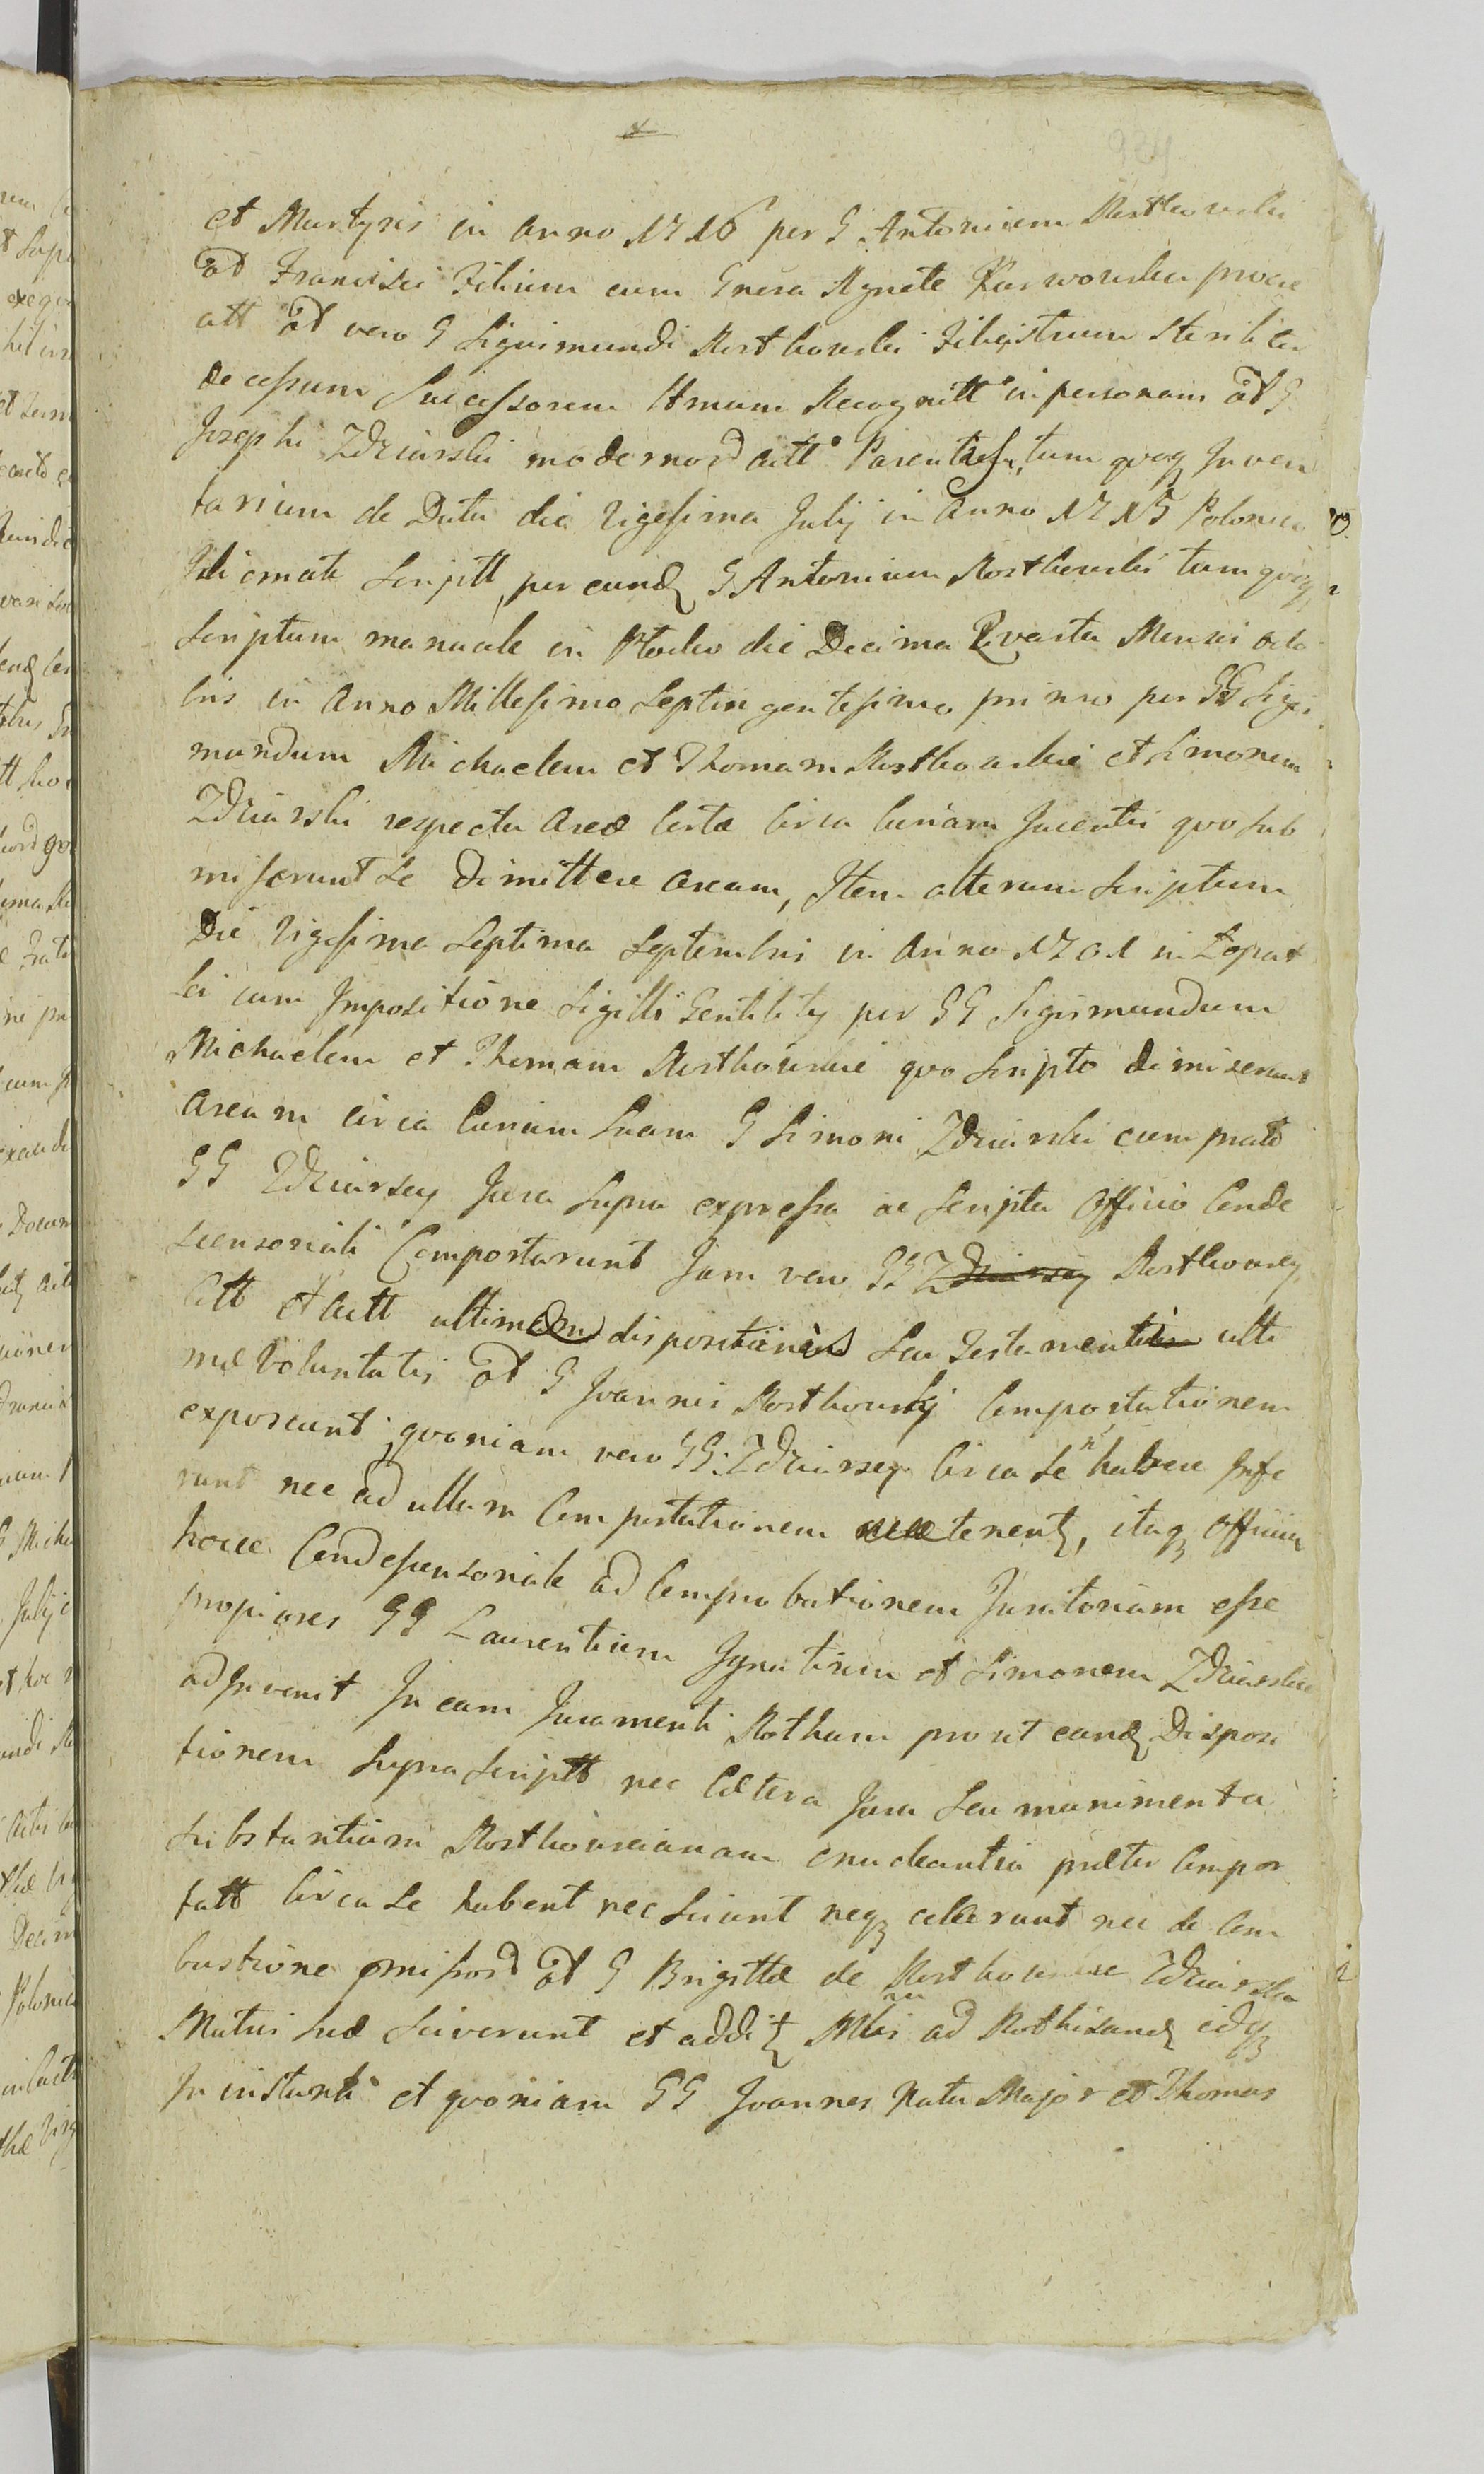 et Martyris in Anno 1716 per G Antonium Rostkowski
ad Francisci Filium cum Grosa Agnete Karwowska procre
att ad vero G Sigismundi Rostkowski Filiastrum Sterilem
decessum Successorem Unicum Recognitt in personam ad G
Josephi Zdziarski modernord actt Parentis, tum qvoq Inven
tarium de Data die Vigesima Julij in Anno 1715 Polonico
Idiomate Scriptt per eund G Antonium Rostkowski tum qvoq
Scriptum manuale in die Decima Qvarta Mensis Octo
bris in Anno Millesimo Septingentesimo primo per GG Sigis
mundum Michaelem et Thomam Rostkowskie et Simonem
Zdziarski respectu Areæ Certæ Circa Curiam Jacentis qvo Sub
miserunt Se Dimittere Aream, Item alterum Scriptum
Die Vigesima Septima Septembris in Anno 1701 in
ci cum Impositione Sigilli Gentilitij per GG Sigismundum
Michaelem et Thomam Rostkowskie qvo Scripto dimiserunt
Aream Circa Curiam Suam G Simoni Zdziarski cum prato
GG Zdziarscy Jura Supra expressa ac Scripta Officio Conde
scensoriali Comportarunt Jam vero GG Zdziarscy Rostkowscy
Att et Citt ultimæ dispositionis Seu Testamenti ulti
mæ Voluntatis ad G Joannis Rostkowskj Comportationem
exposcunt, qvoniam vero GG: Zdziarscy Circa Se n habere Infe
runt nec ad ullam Comportationem tenent, itaq Officium
hocce Condescensoriale ad Comprobationem Juratoriam esse
propiores GG Laurentium Ignatium et Simonem Zdziarskie
adinvenit In eam Juramenti Rotham prout eand Disposi
tionem Supra Scriptt nec Cætera Jura Seu munimenta
Substantiam Rostkowscianam enucleantia præter Compor
tatt Circa Se habent nec Sciunt neq celarunt nec de Com
bustione omissord ad G Brigittæ de Rostkowskie Zdziarska
Matris Suæ Sciverunt et addit ad Rothisand idq
In instanti et qvoniam GG Joannes Natu Major et Thomas